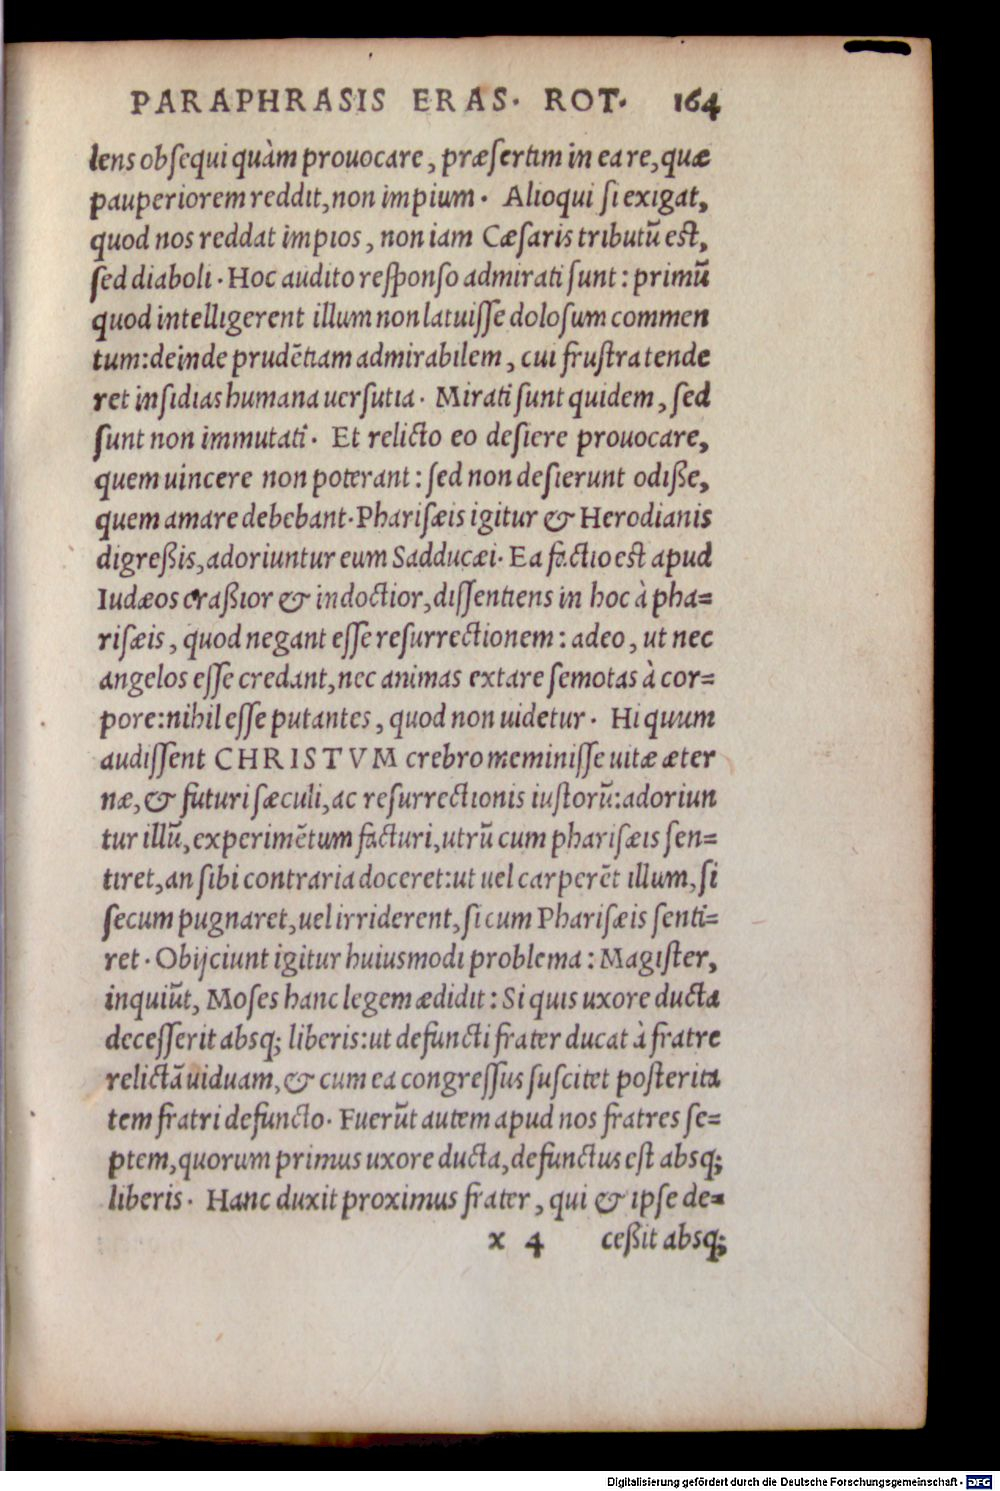 PARAPHRASIS ERAS. ROT. 164
lens obſequi quàm prouocare, præſertim in ea re, quæ
pauperiorem reddit, non impium. Alioqui ſi exigat,
quod nos reddat impios, non iam Cæſaris tributũ eſt,
ſed diaboli. Hoc audito reſponſo admirati ſunt: primũ
quod intelligerent illum non latuiſſe doloſum commen
tum: deinde prudẽtiam admirabilem, cui fruſtra tende
ret inſidias humana uerſutia. Mirati ſunt quidem, ſed
ſunt non immutati. Et relicto eo deſiere prouocare,
quem uincere non poterant: ſed non deſierunt odiße,
quem amare debebant. Phariſæis igitur & Herodianis
digreßis, adoriuntur eum Sadducæi. Ea factio eſt apud
Iudæos craßior & indoctior, diſſentiens in hoc à pha=
riſæis, quod negant eſſe reſurrectionem: adeo, ut nec
angelos eſſe credant, nec animas extare ſemotas à cor=
pore: nihil eſſe putantes, quod non uidetur. Hi quum
audiſſent CHRISTVM crebro meminiſſe uitæ æter
næ, & futuri ſæculi, ac reſurrectionis iuſtorũ: adoriun
tur illũ, experimẽtum facturi, utrũ cum phariſæis ſen=
tiret, an ſibi contraria doceret: ut uel carperẽt illum, ſi
ſecum pugnaret, uel irriderent, ſi cum Phariſæis ſenti=
ret. Obijciunt igitur huiusmodi problema: Magiſter,
inquiũt, Moſes hanc legem ædidit: Si quis uxore ducta
deceſſerit absq; liberis: ut defuncti frater ducat à fratre
relictã uiduam, & cum ea congreſſus ſuſcitet poſterita
tem fratri defuncto. Fuerũt autem apud nos fratres ſe=
ptem, quorum primus uxore ducta, defunctus eſt absq;
liberis. Hanc duxit proximus frater, qui & ipſe de=
x 4 ceßit absq;
Digitalisierung gefördert durch die Deutsche Forschungsgemeinschaft - DFG